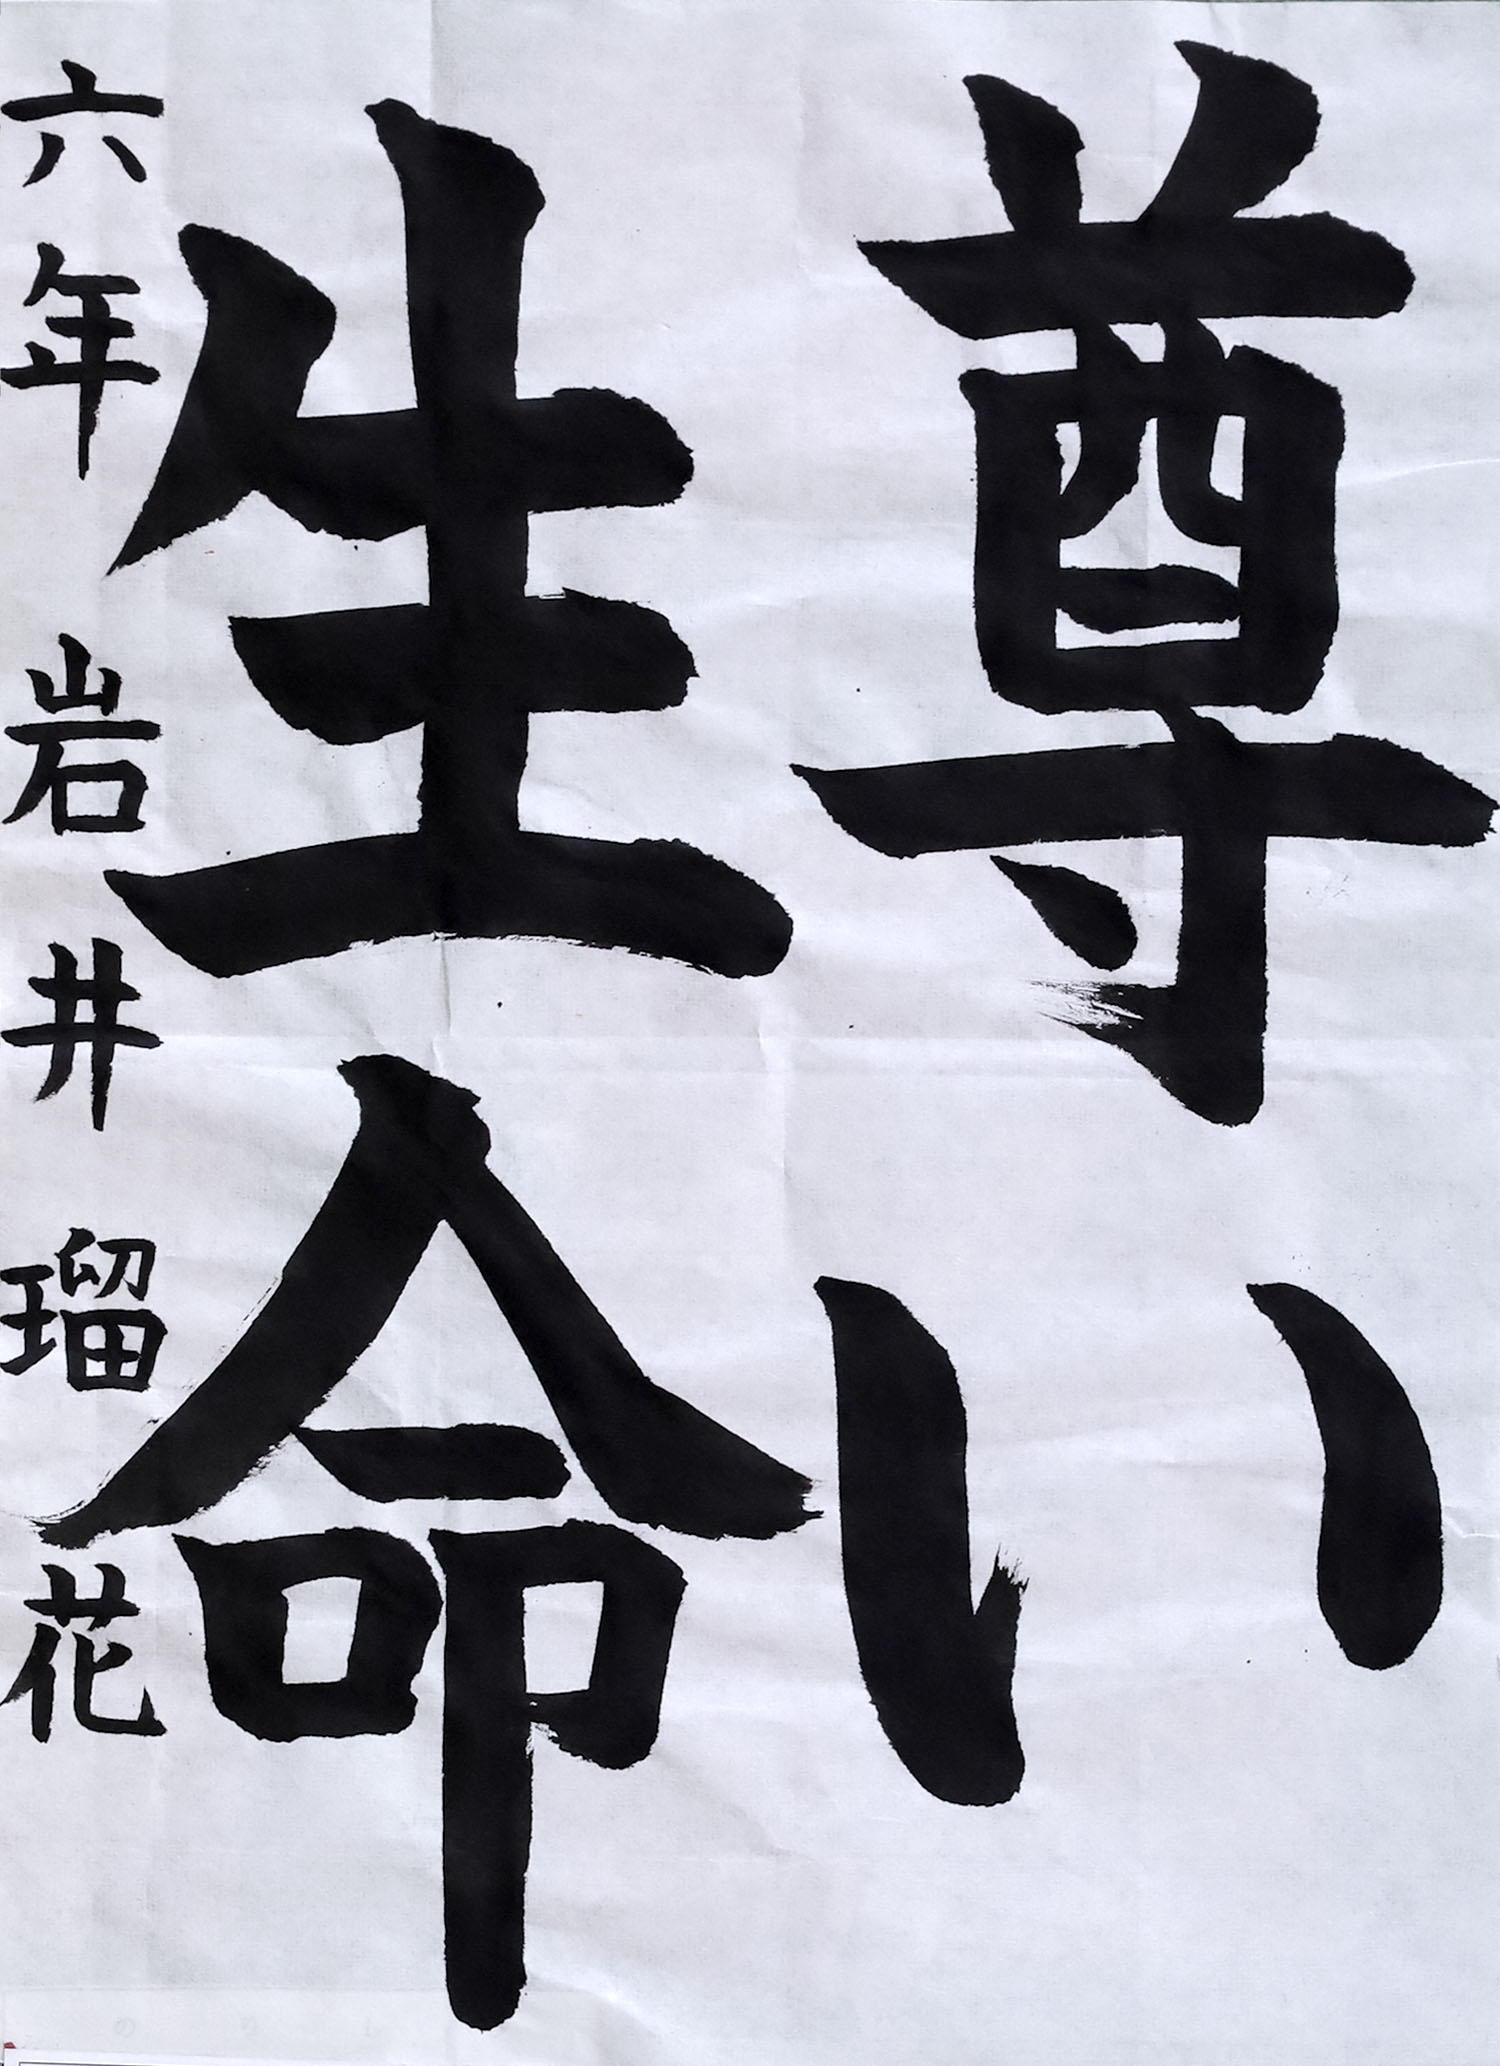 尊い
生命
六年 岩井 瑠花